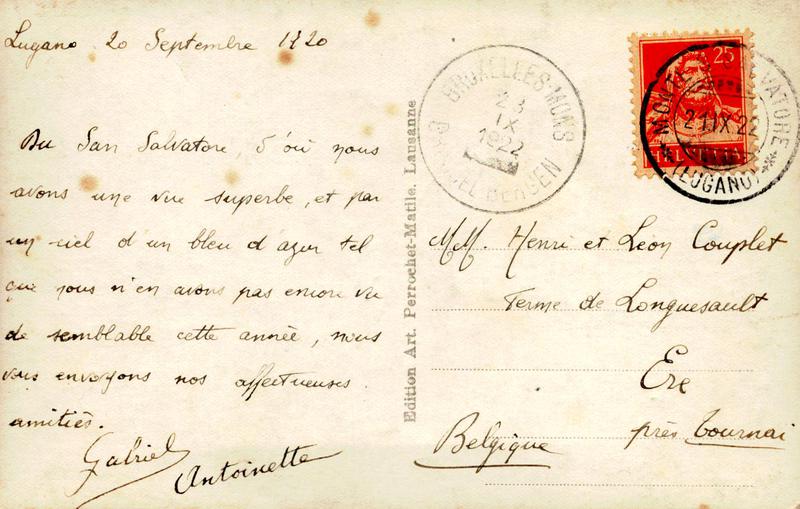 Lugano 20 Septembre 1920
Du San Salvatore, d'où nous
avons une vue superbe, et par
un ciel d'un bleu d'azur tel
que nous n'en avons pas encore vu
de semblable cette année, nous
vous envoyons nos affectueuses
amitiés.
Gabriel
Antoinette
Edition Art. Perrochet-Matile, Lausanne
BRUXELLES-MONS
23
IX
1922
BRUSSEL-BERGEN
25
HELVETIA
MONTE S. SALVATORE
21.IX.22
(LUGANO)
MM. Henri et Léon Couplet
Ferme de Longuesault
Ere
près Tournai
Belgique